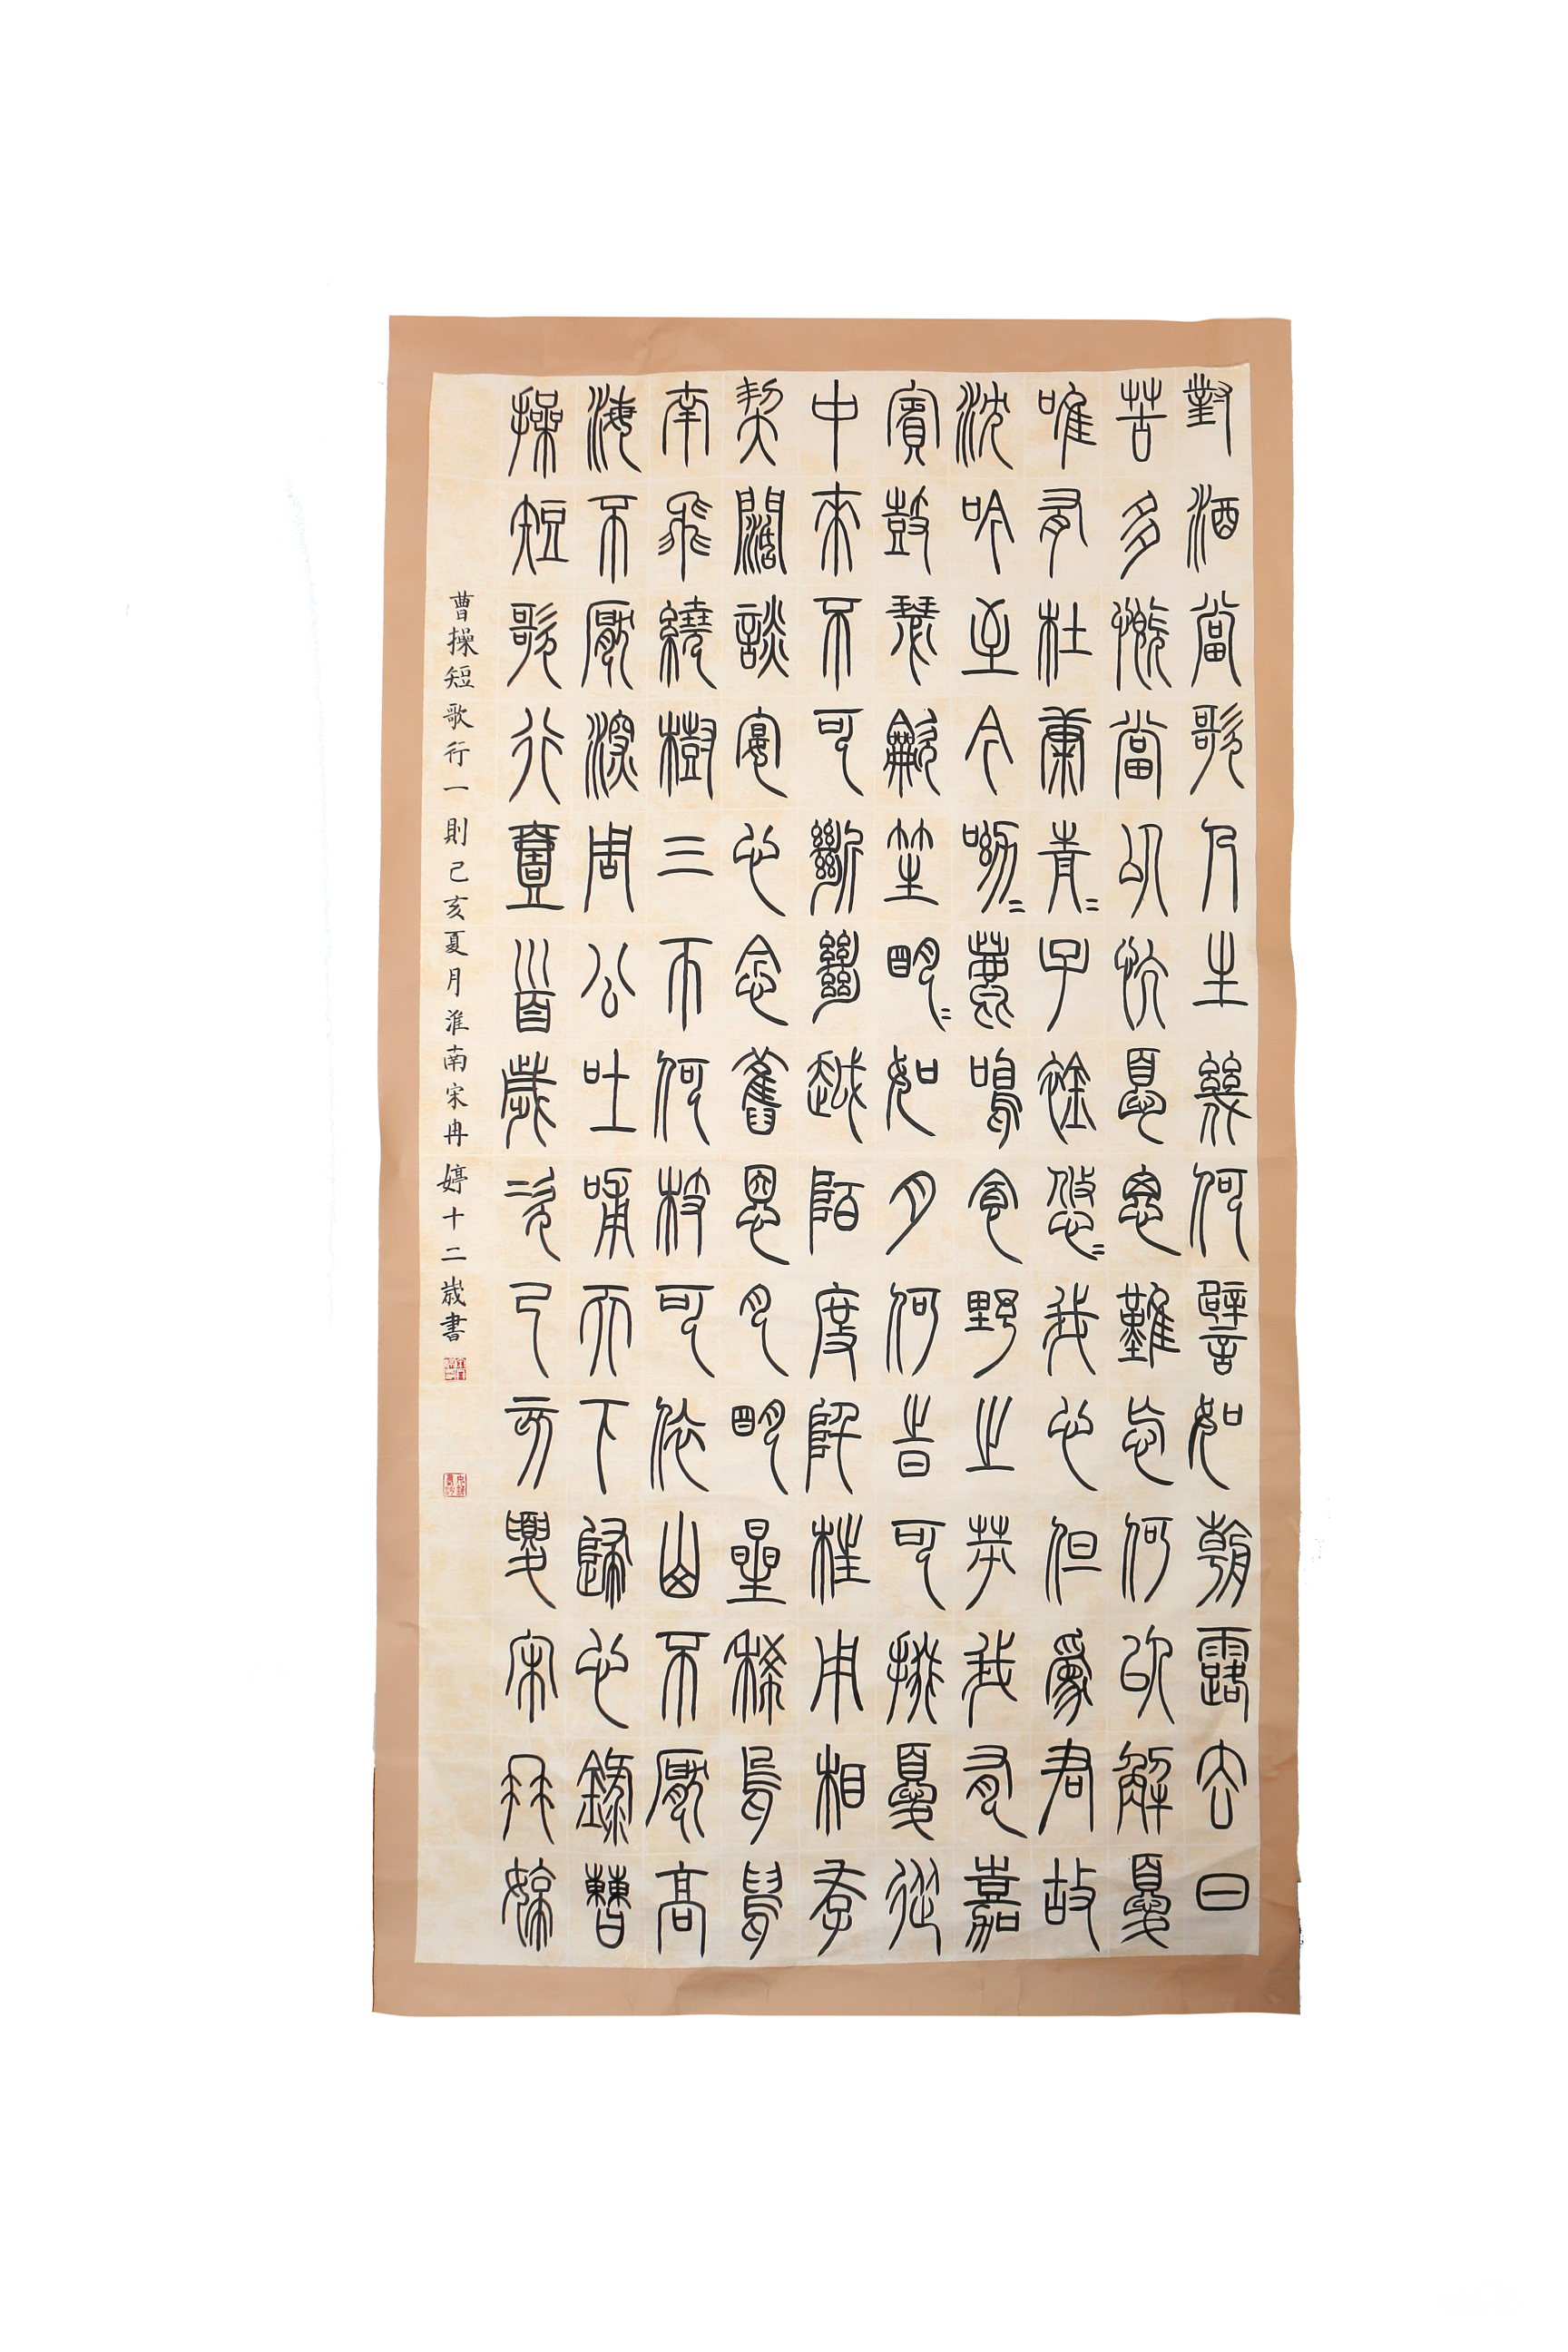 對酒當歌人生幾何譬如朝露去日
苦多慨當以慷憂思難忘何以解憂
唯有杜康青〻子衿悠〻我心但為君故
沈吟至今呦〻鹿鳴食野之苹我有嘉
賓鼓瑟龡笙明〻如月何旹可掇憂從
中來不可斷絕越陌度阡枉用相存
契闊談宴心念舊恩月明星稀烏鵲
南飛繞樹三匝何枝可依山不厭高
海不厭深周公吐哺天下歸心錄曹
操短歌行壹首歲次己亥夏宋冉婷
曹操短歌行一則己亥夏月淮南宋冉婷十二歲書